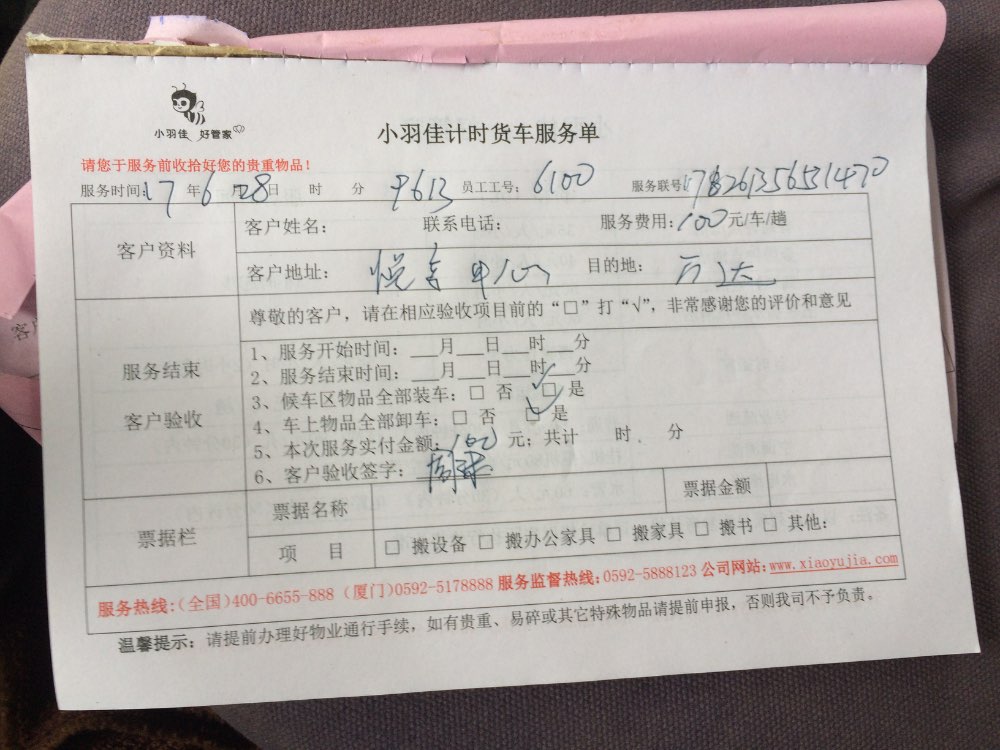 小羽佳 好管家
小羽佳计时货车服务单
请您于服务前收拾好您的贵重物品！
服务时间：17年6月28日 时 分 9613 员工工号：6100 服务联号
客户资料
客户姓名： 联系电话： 服务费用：100元/车/趟
客户地址： 目的地： 万达
尊敬的客户，请在相应验收项目前的“□”打“√”，非常感谢您的评价和意见
服务结束
客户验收
1、服务开始时间：___月___日___时___分
2、服务结束时间：___月___日___时___分
3、候车区物品全部装车：□ 否 ☑ 是
4、车上物品全部卸车：□ 否 ☑ 是
5、本次服务实付金额：100元；共计 时 分
6、客户验收签字：
票据栏
票据名称 票据金额
项 目 □ 搬设备 □ 搬办公家具 □ 搬家具 □ 搬书 □ 其他：
服务热线：（全国）400-6655-888（厦门）0592-5178888 服务监督热线：0592-5888123 公司网站：www.xiaoyujia.com
温馨提示：请提前办理好物业通行手续，如有贵重、易碎或其它特殊物品请提前申报，否则我司不予负责。